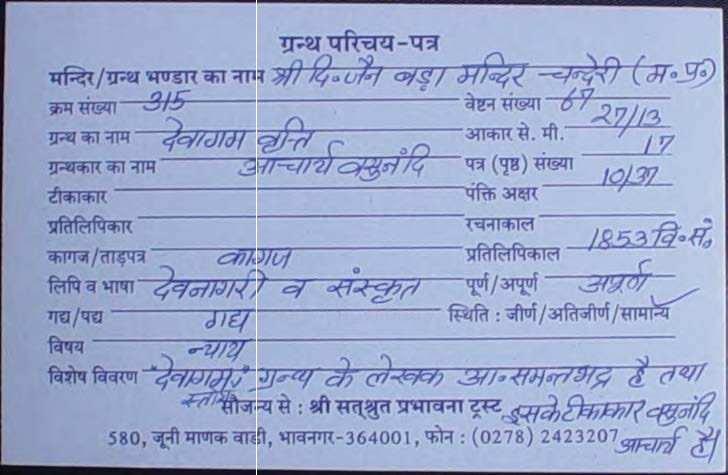 ग्रन्थ परिचय-पत्र
मन्दिर/ग्रन्थ भण्डार का नाम श्री दि॰ जैन बड़ा मन्दिर चन्देरी (म॰प्र॰)
क्रम संख्या 315 वेष्टन संख्या 67
ग्रन्थ का नाम देवागम वृत्ति आकार से. मी. 27/13
ग्रन्थकार का नाम आचार्य वसुनंदि पत्र (पृष्ठ) संख्या 17
टीकाकार पंक्ति अक्षर 10/37
प्रतिलिपिकार रचनाकाल
कागज/ताड़पत्र कागज प्रतिलिपिकाल 1853 वि॰सं॰
लिपि व भाषा देवनागरी व संस्कृत पूर्ण/अपूर्ण अपूर्ण
गद्य/पद्य गद्य स्थिति : जीर्ण/अतिजीर्ण/सामान्य
विषय न्याय
विशेष विवरण "देवागम" ग्रन्थ के लेखक आ॰ समन्तभद्र है तथा
सौजन्य से : श्री सत्श्रुत प्रभावना ट्रस्ट इसके टीकाकार वसुनंदि
580, जूनी माणक वाडी, भावनगर-364001, फोन : (0278) 2423207 आचार्य है।